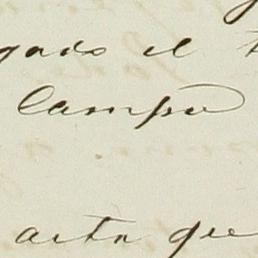 gado el
Campo
acta que